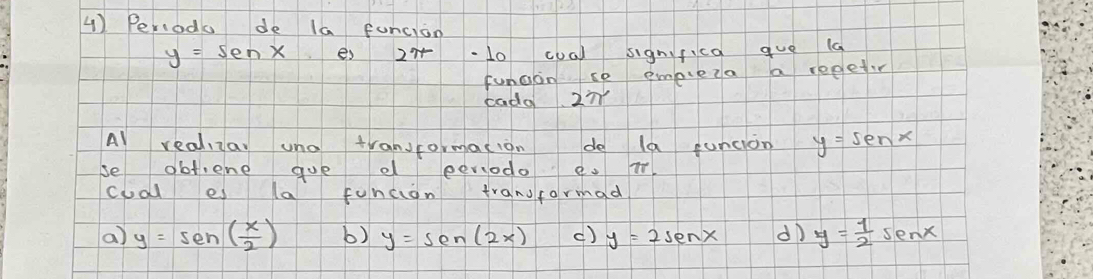 4) Periodo de la función
y = sen x es 2π · lo cual significa que la
función se empieza a repetir
cada 2π
Al realizar una transformación de la función y = sen x
se obtiene que el periodo es π.
cual es la función transformad
a) y = sen (x/2) b) y = sen (2x) c) y = 2 sen x d) y = 1/2 sen x